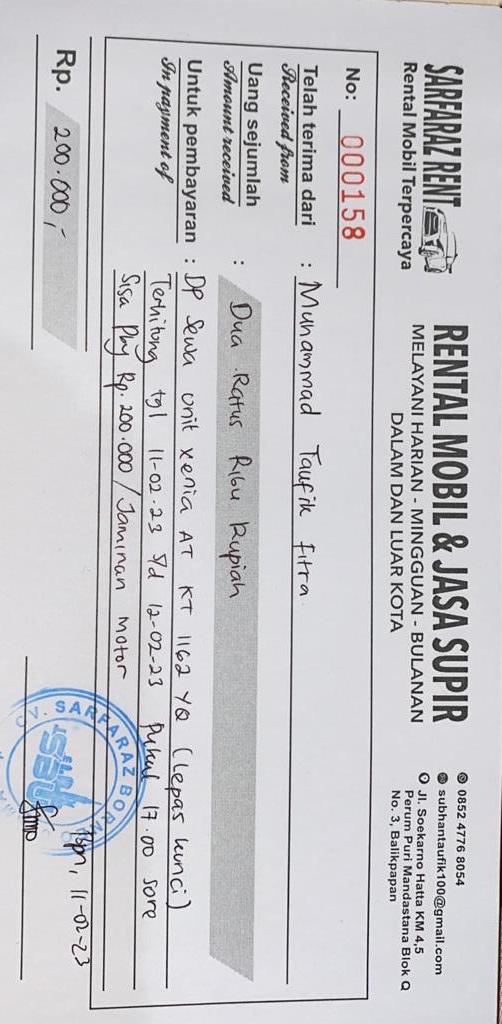 SARFARAZ RENT
Rental Mobil Terpercaya
RENTAL MOBIL & JASA SUPIR
MELAYANI HARIAN - MINGGUAN - BULANAN
DALAM DAN LUAR KOTA
0852 4776 8054
subhantaufik100@gmail.com
Jl. Soekarno Hatta KM 4,5
Perum Puri Mandastana Blok Q
No. 3, Balikpapan
No: 000158
Telah terima dari : Muhammad Taufik Fitra
Received from
Uang sejumlah : Dua Ratus Ribu Rupiah
Amount received
Untuk pembayaran : DP Sewa unit xenia AT KT 1162 YQ (Lepas kunci)
In payment of
Terhitung tgl 11-02-23 s/d 12-02-23 pukul 17.00 sore
Sisa Pby Rp. 200.000 / Jaminan Motor
Bpn, 11-02-23
Rp. 200.000,-
CV. SARFARAZ BORNEO